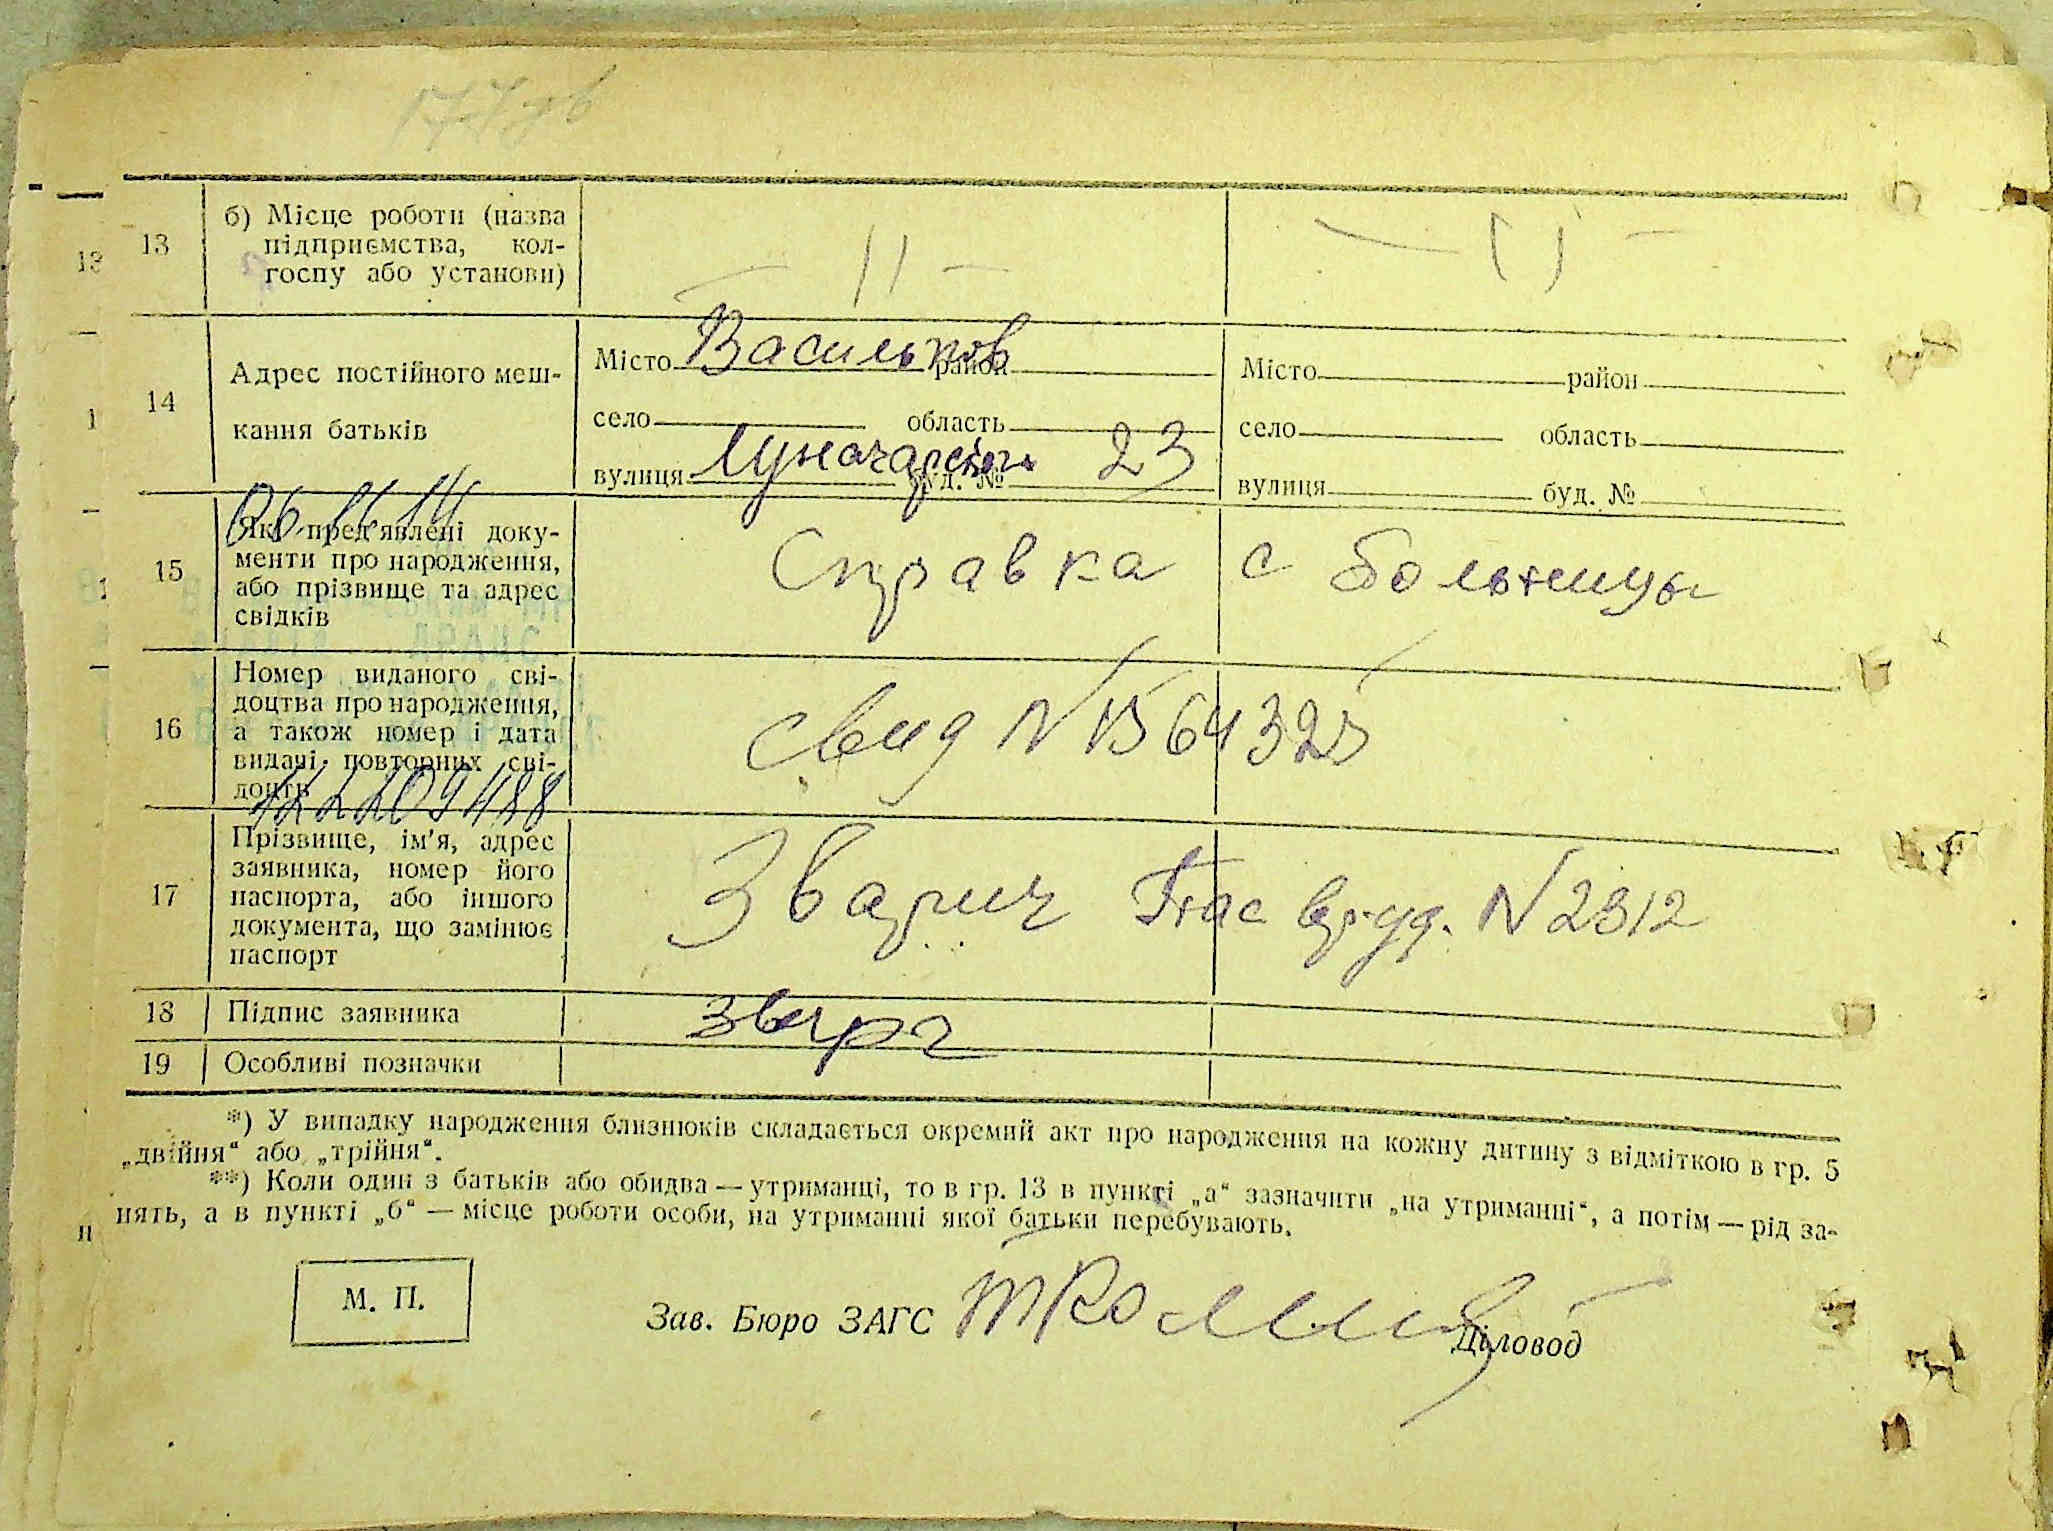 13
13
б) Місце роботи (назва
підприємства, кол-
госпу або установи)
— // —
— // —
1
14
Адрес постійного меш-
кання батьків
Місто Васильков район
село область
вулиця Луначарского буд. № 23
Місто район
село область
вулиця буд. №
1
15
Які пред'явлені доку-
менти про народження,
або прізвище та адрес
свідків
Справка с больницы
16
Номер виданого сві-
доцтва про народження,
а також номер і дата
видачі повторних сві-
доцтв
свид N
17
Прізвище, ім'я, адрес
заявника, номер його
паспорта, або іншого
документа, що замінює
паспорт
Зварич Пас N 2312
18
Підпис заявника
19
Особливі позначки
*) У випадку народження близнюків складається окремий акт про народження на кожну дитину з відміткою в гр. 5
„двійня“ або „трійня“.
**) Коли один з батьків або обидва — утриманці, то в гр. 13 в пункті „а“ зазначити „на утриманні“, а потім — рід за-
нять, а в пункті „б“ — місце роботи особи, на утриманні якої батьки перебувають.
М. П.
Зав. Бюро ЗАГС
Діловод